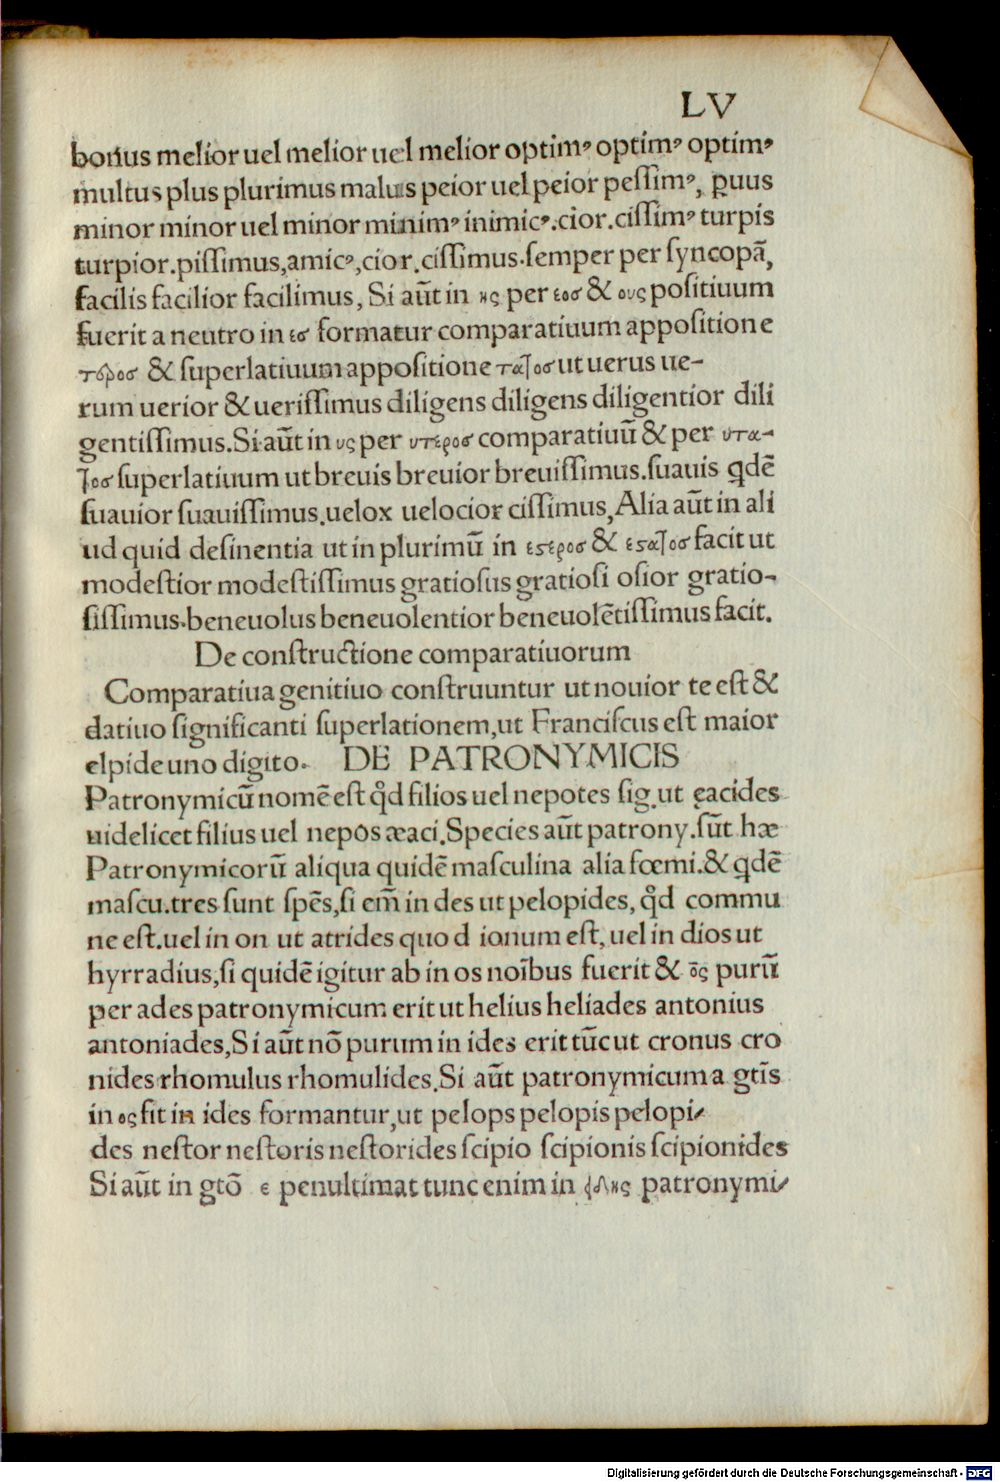 LV
bonus melior uel melior uel melior optimꝰ optimꝰ optimꝰ
multus plus plurimus malus peior uel peior peſſimꝰ, ꝑuus
minor minor uel minor minimꝰ inimicꝰ.cior.ciſſimꝰ turpis
turpior.piſſimus,amicꝰ,cior.ciſſimus.ſemper per ſyncopā,
facilis facilior facilimus, Si aūt in ης per εοσ & ους poſitiuum
fuerit a neutro in εσ formatur comparatiuum appoſitione
τερος & ſuperlatiuum appoſitione τατοσ ut uerus ue-
rum uerior & ueriſſimus diligens diligens diligentior dili
gentiſſimus.Si aūt in υς per υτεροσ comparatiuū & per υτα-
τοσ ſuperlatiuum ut breuis breuior breuiſſimus.ſuauis qdē
ſuauior ſuauiſſimus.uelox uelocior ciſſimus,Alia aūt in ali
ud quid deſinentia ut in plurimū in εστεροσ & εστατοσ facit ut
modeſtior modeſtiſſimus gratioſus gratioſi oſior gratio-
ſiſſimus.beneuolus beneuolentior beneuolētiſſimus facit.
De conſtructione comparatiuorum
Comparatiua genitiuo conſtruuntur ut nouior te eſt &
datiuo ſignificanti ſuperlationem,ut Franciſcus eſt maior
elpide uno digito. DE PATRONYMICIS
Patronymicū nomē eſt qd̄ filios uel nepotes ſig.ut ęacides
uidelicet filius uel nepos æaci.Species aūt patrony.ſūt hæ
Patronymicorū aliqua quidē maſculina alia fœmi.& qdē
maſcu.tres ſunt ſpēs,ſi em̄ in des ut pelopides, qd̄ commu
ne eſt.uel in on ut atrides quod ionum eſt, uel in dios ut
hyrradius,ſi quidē igitur ab in os noībus fuerit & ος purū
per ades patronymicum erit ut helius heliades antonius
antoniades,Si aūt nō purum in ides erit tūc ut cronus cro
nides rhomulus rhomulides.Si aūt patronymicum a gtīs
in ος fit in ides formantur,ut pelops pelopis pelopi-
des neſtor neſtoris neſtorides ſcipio ſcipionis ſcipionides
Si aūt in gtō ε penultimat tunc enim in ιδης patronymi-
Digitalisierung gefördert durch die Deutsche Forschungsgemeinschaft - DFG